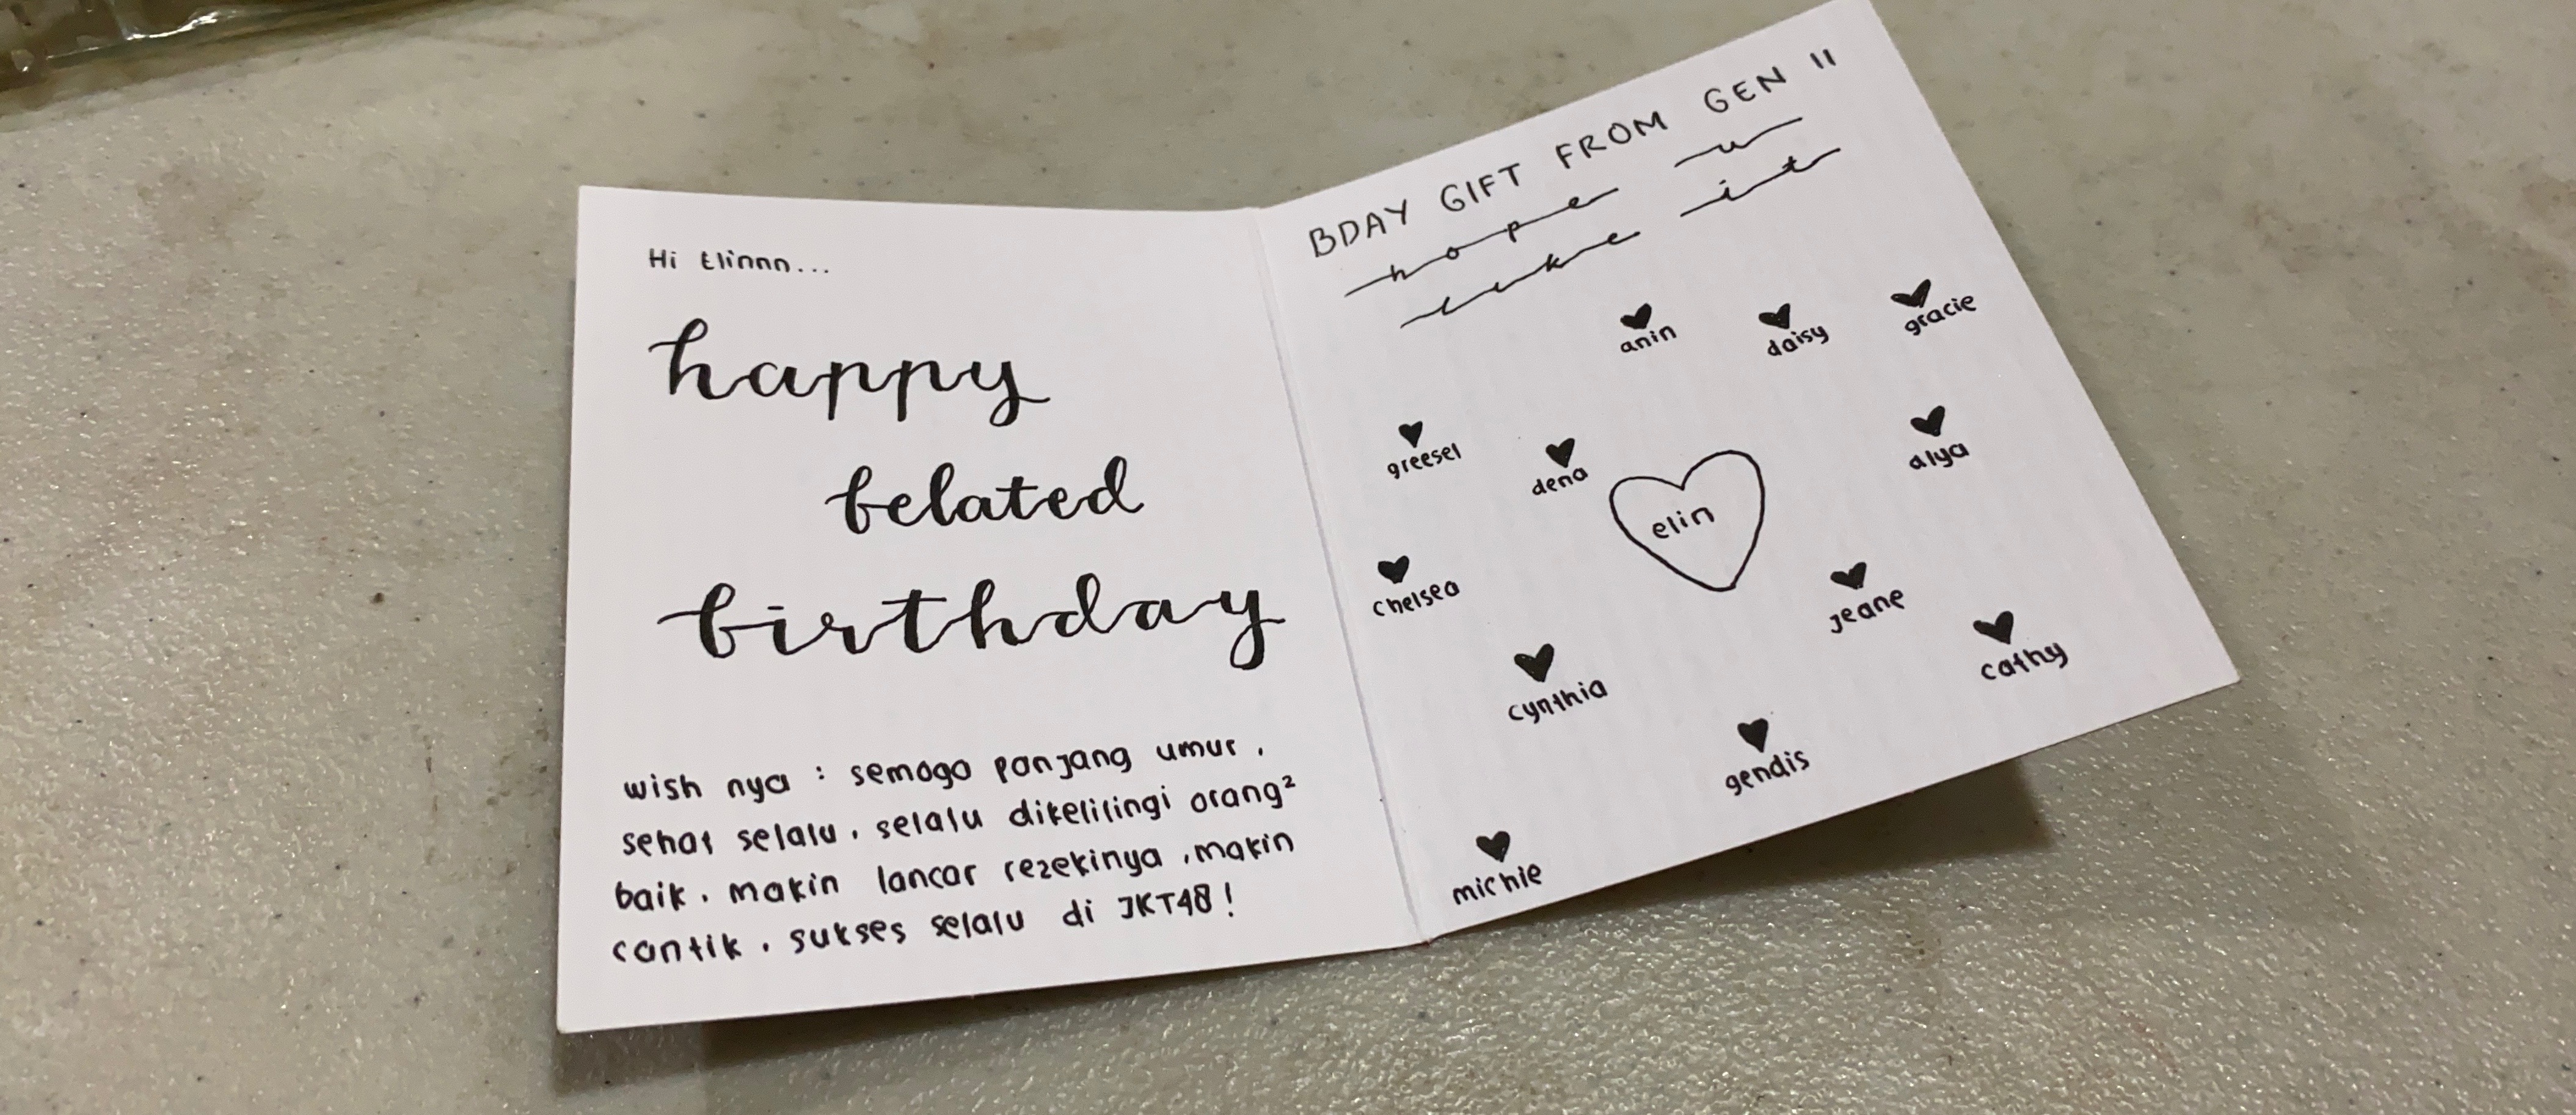 Hi Elinnn...
happy
belated
birthday
wish nya : semoga panjang umur,
sehat selalu, selalu dikelilingi orang²
baik, makin lancar rezekinya, makin
cantik, sukses selalu di JKT48!
BDAY GIFT FROM GEN 11
hope u
like it
anin
daisy
gracie
greesel
dena
elin
alya
chelsea
jeane
cynthia
cathy
gendis
michie